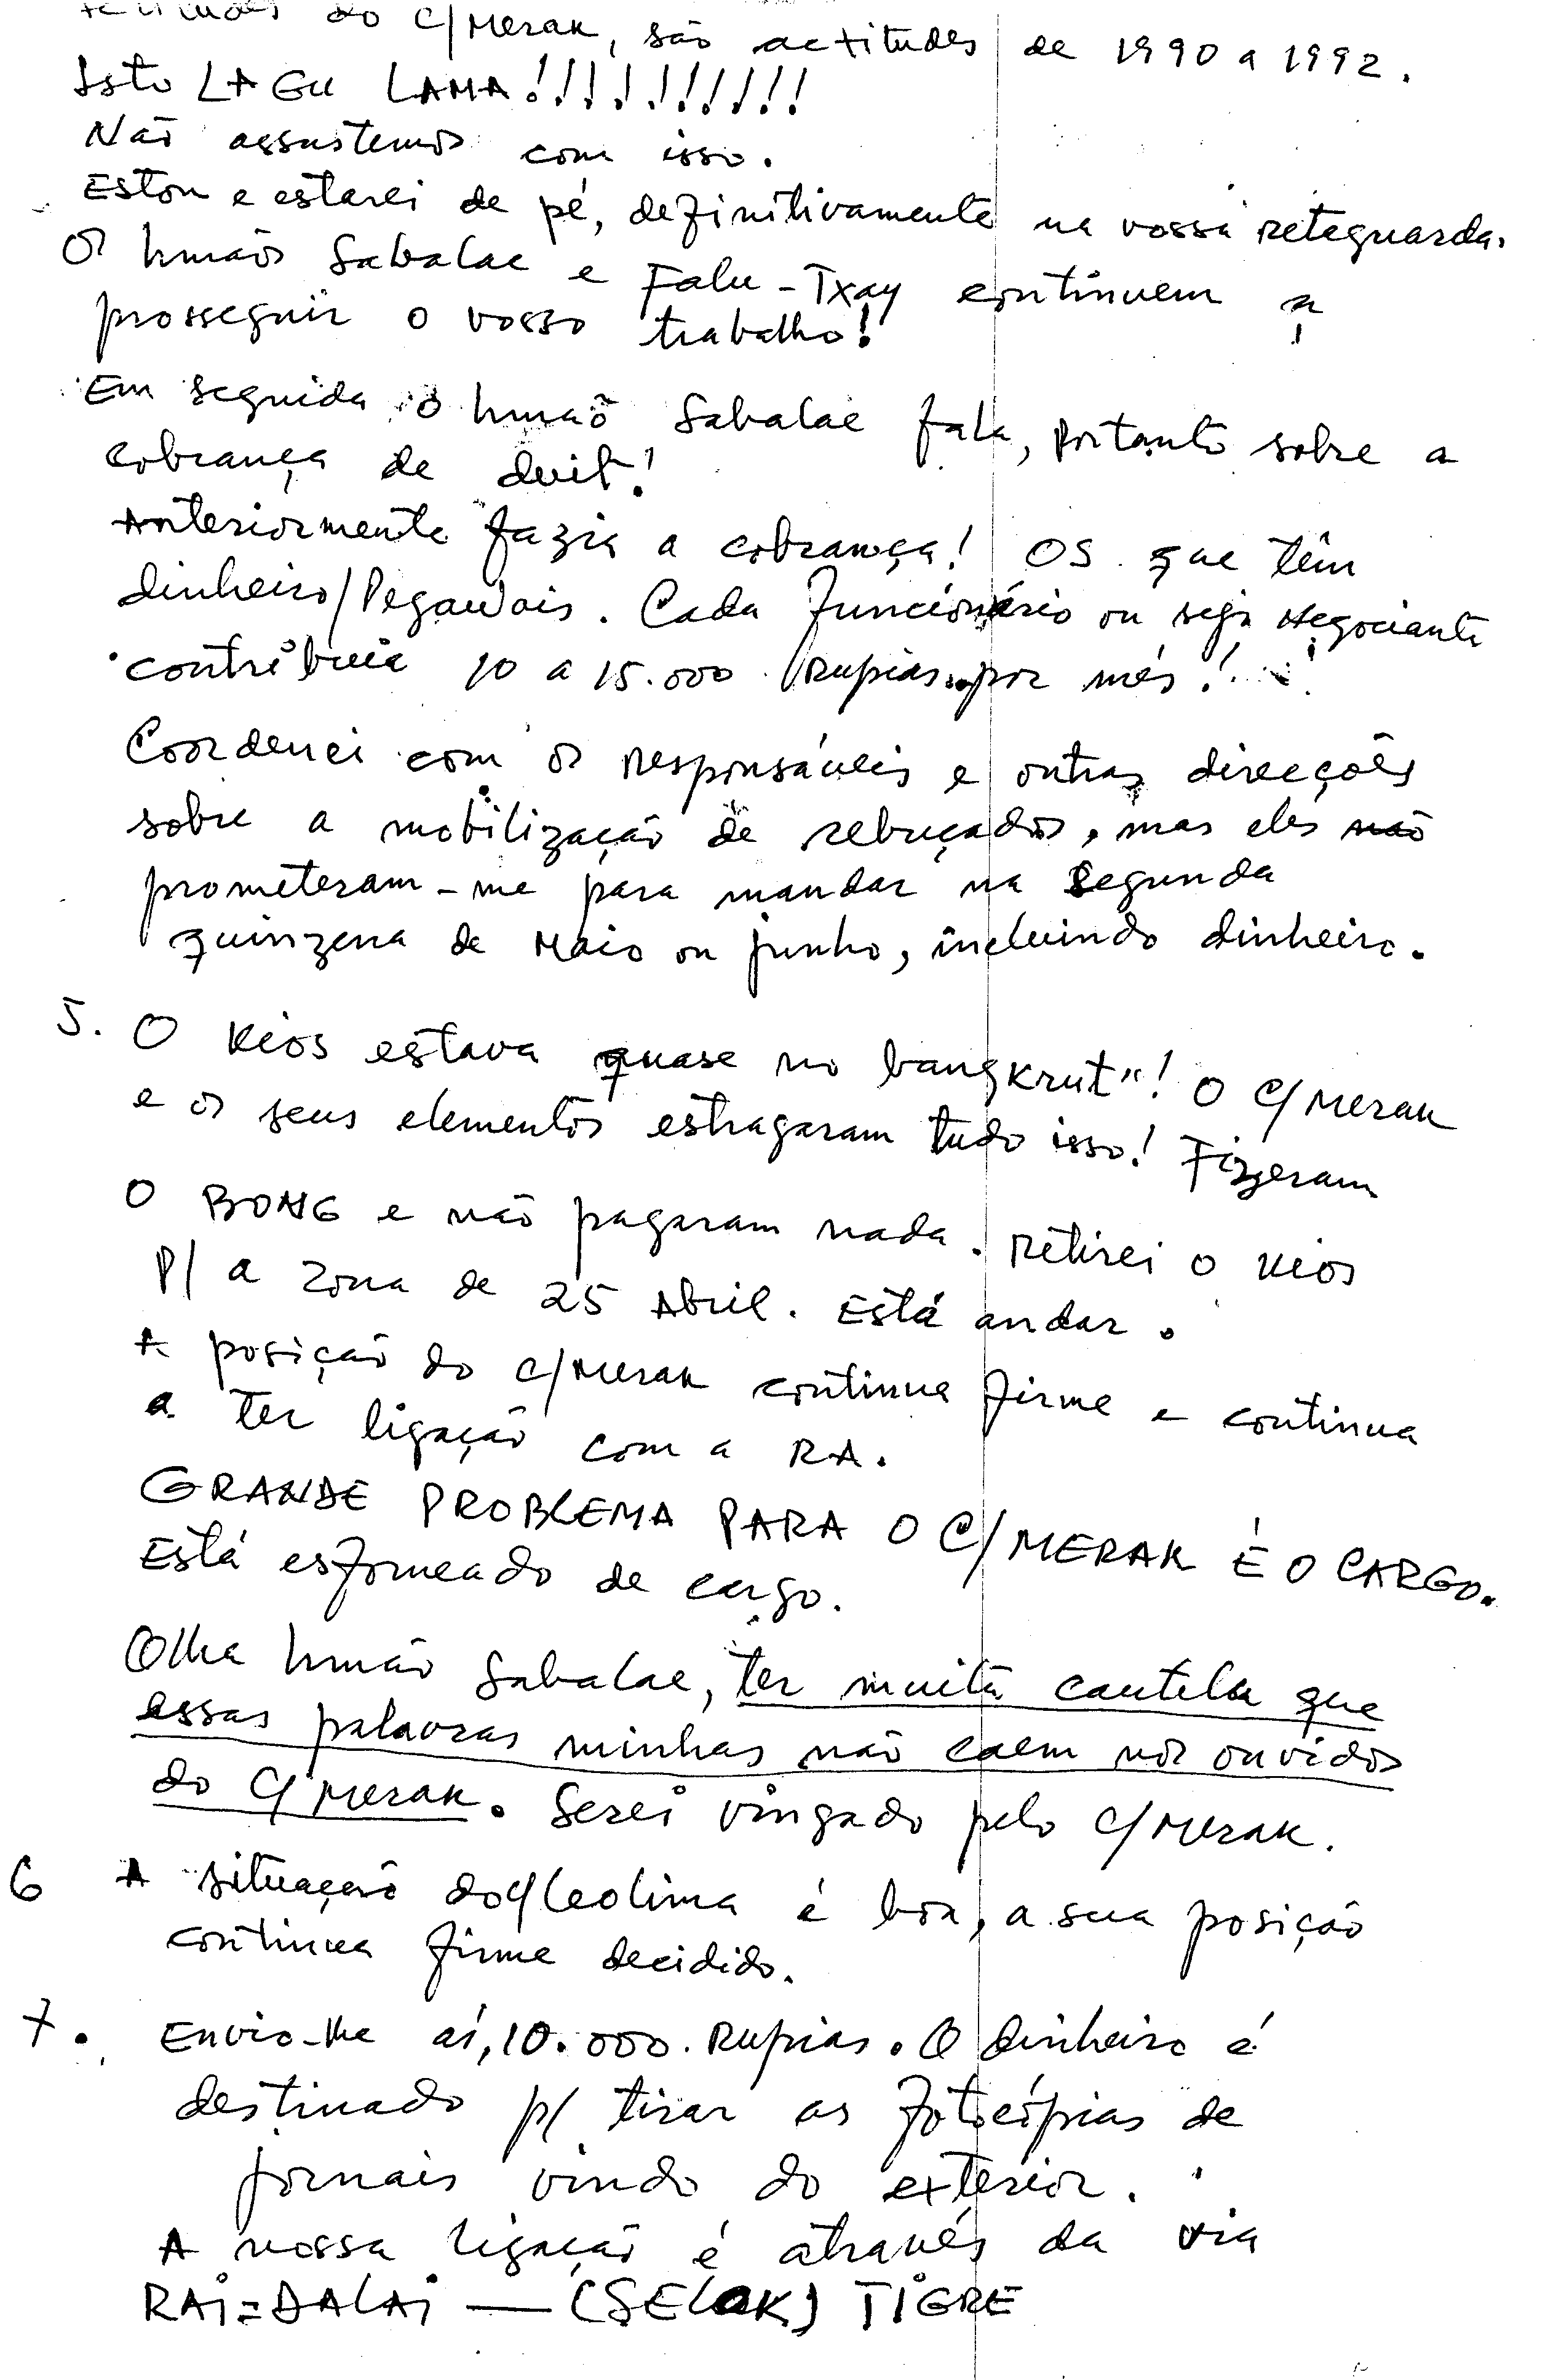 do C/Merak, são actitudes de 1990 a 1992.
Isto LAGU LAMA!!!!!!!!!!
Não assustemos com isso.
Estou e estarei de pé, definitivamente na vossa reteguarda.
Os Irmãos Sabalae e Falu-Txay continuem a
prosseguir o vosso trabalho!
Em seguida o Irmão Sabalae fala, portanto sobre a
cobrança de duit!
Anteriormente fazia a cobrança! OS que têm
dinheiro/Pegawais. Cada funcionário ou seja Negociante
contribuia 10 a 15.000 Rupias por mês!
Coordenei com os responsáveis e outras direcções
sobre a mobilização de rebuçados, mas eles não
prometeram-me para mandar na Segunda
quinzena de Maio ou junho, incluindo dinheiro.
5. O Kios estava quase no bangkrut"! O C/Merak
e os seus elementos estragaram tudo isso! Fizeram
O BONG e não pagaram nada. Retirei o Kios
P/ a zona de 25 Abril. Está andar.
A posição do C/Merak continua firme e continua
a ter ligação com a RA.
GRANDE PROBLEMA PARA O C/MERAK É O CARGO.
Está esfomeado de cargo.
Olha Irmão Sabalae, ter muita cautela que
essas palavras minhas não caem nos ouvidos
do C/Merak. Serei vingado pelo C/Merak.
6 A situação do C/Leolima é boa, a sua posição
continua firme decidido.
7. Envio-lhe aí, 10.000. Rupias. O dinheiro é
destinado p/ tirar as fotocópias de
jornais vindo do exterior.
A nossa ligação é através da via
RAi=DALAi — (SELOK) TIGRE